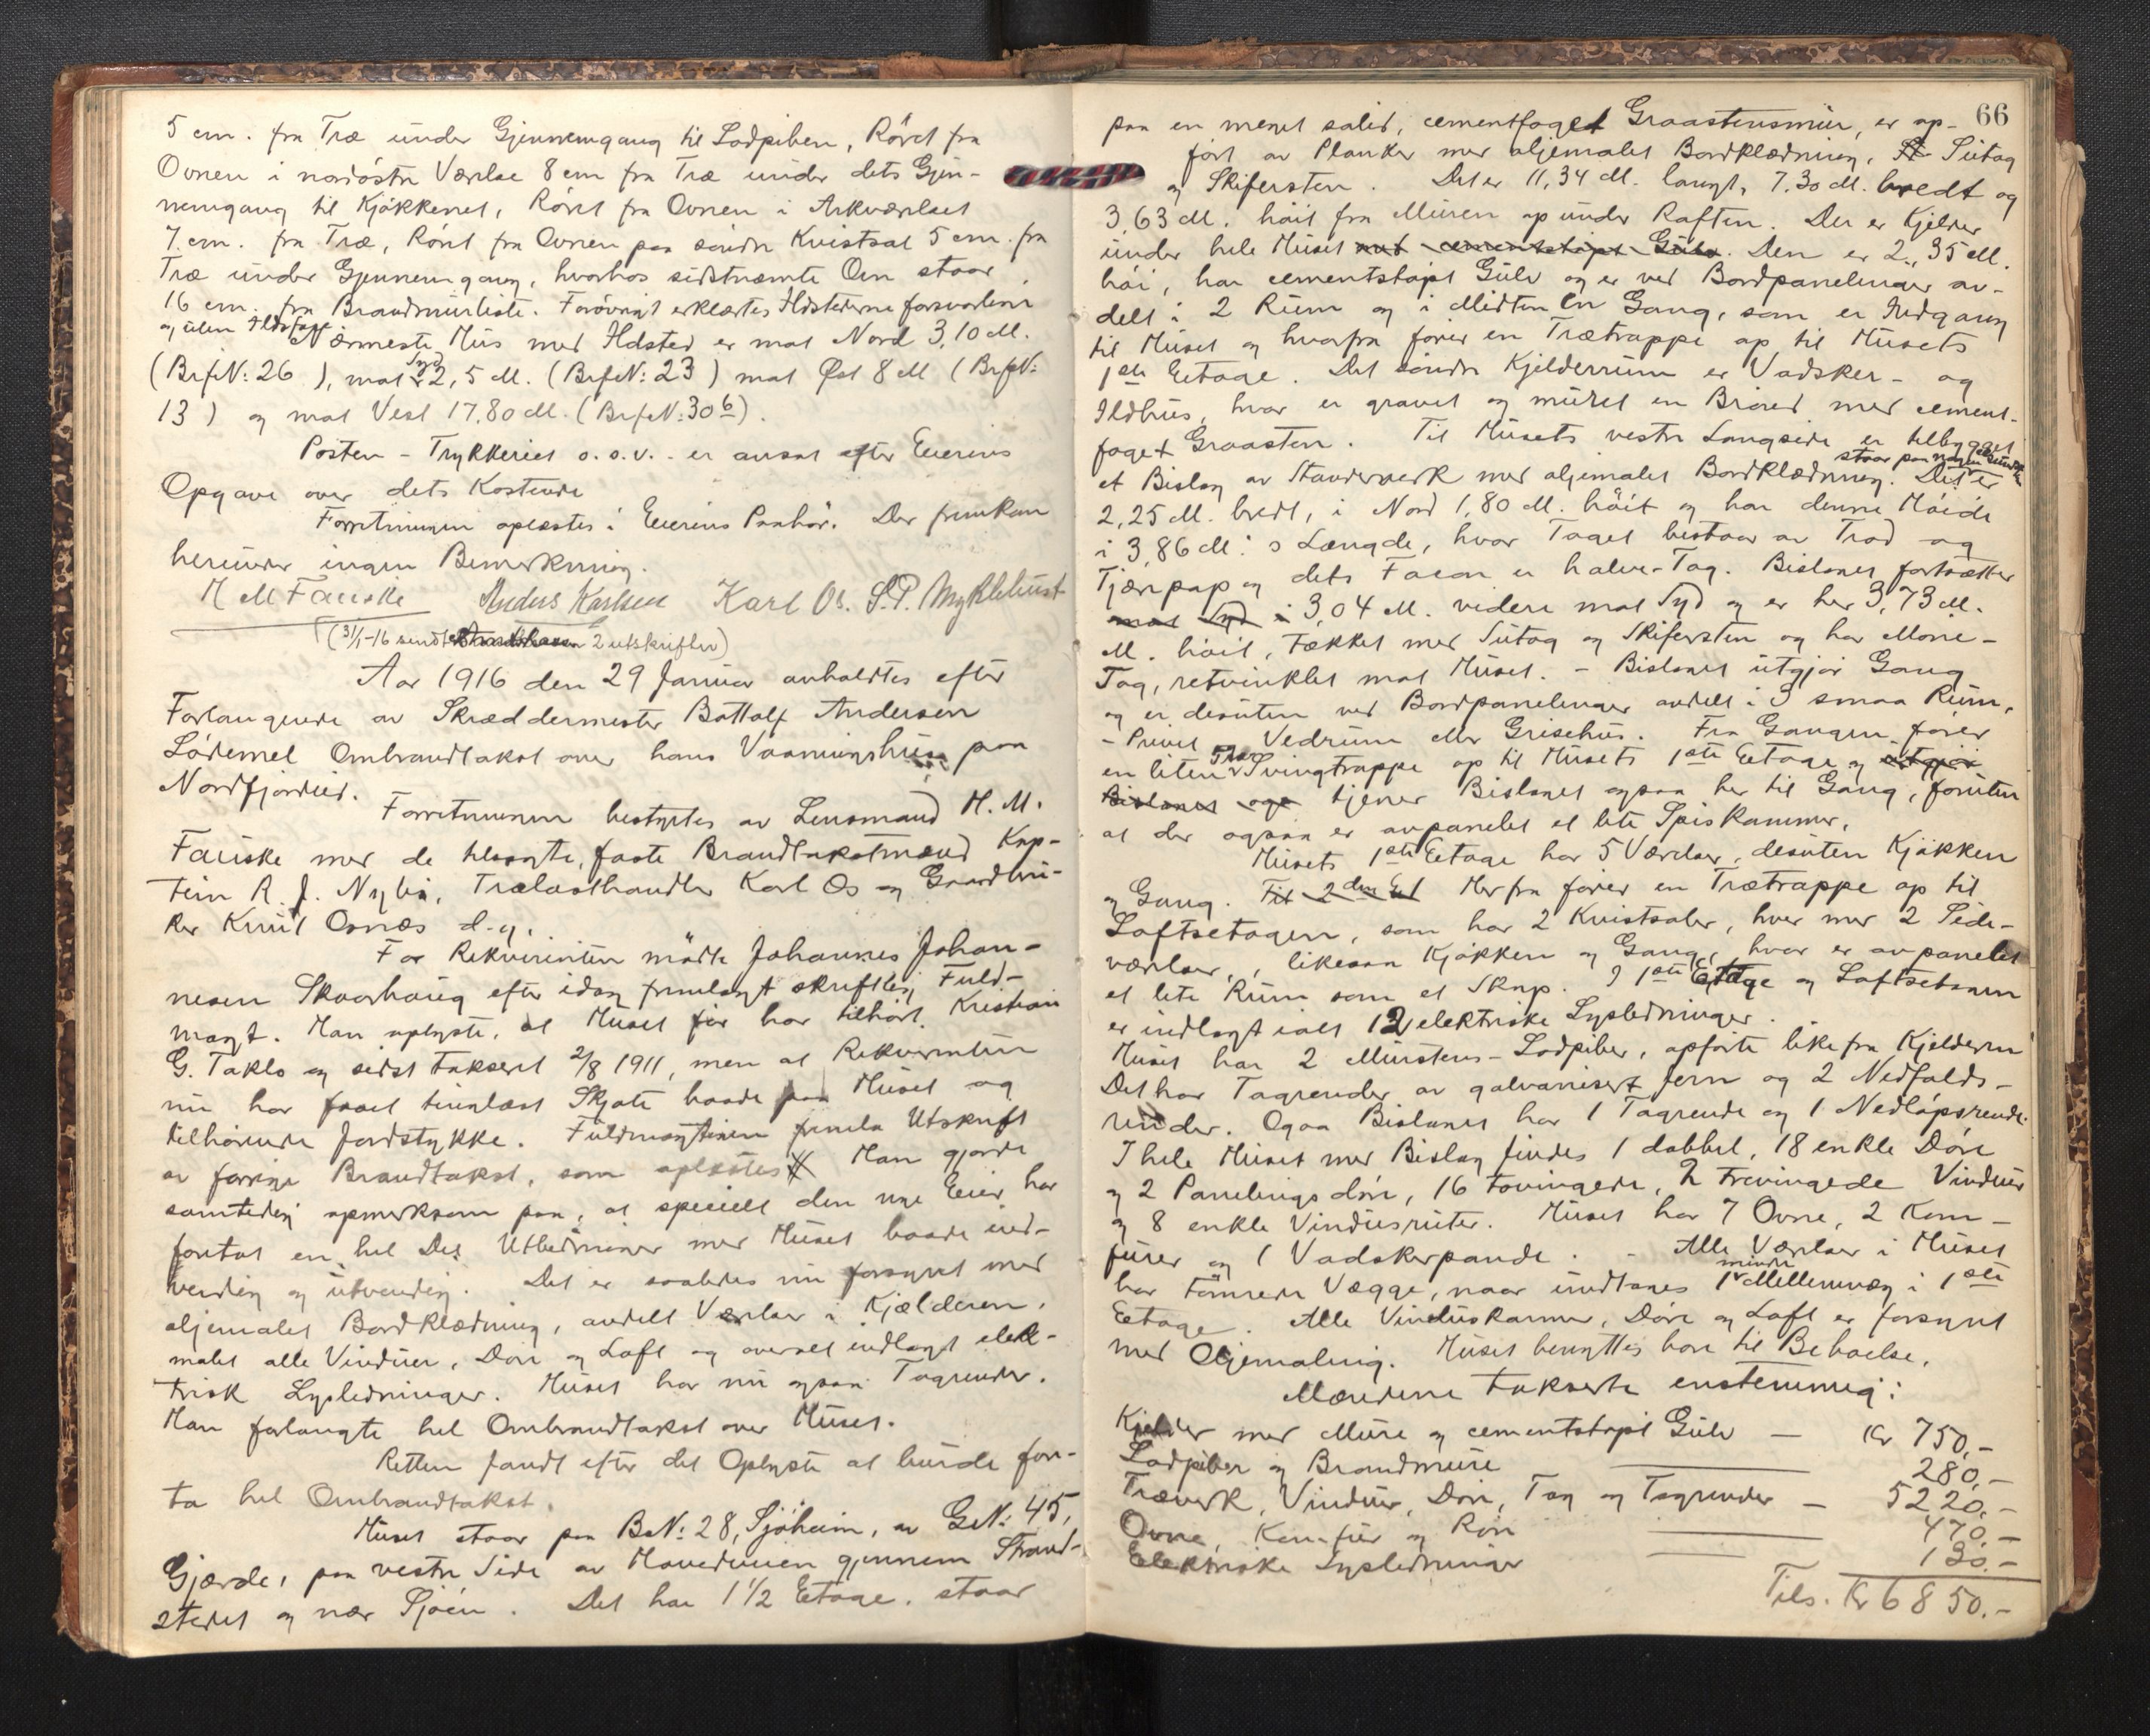 5 cm. fra Træ under Gjennemgang til Sodpiben, Röret fra
Ovnen i nordöstre Værelse 8 cm fra Træ under dets Gjen-
nemgang til Kjökkenet, Röret fra Ovnen i Arkværelset
7 cm. fra Træ, Röret fra Ovnen paa söndre Kvistsal 5 cm. fra
Træ under Gjennemgang, hvorhos sidstnævnte Ovn staar
16 cm. fra Brandmurliste. Forövrigt erklærtes Ildstederne forsvarlige
og uten Ildsfare
Nærmeste Hus med Ildsted er mot Nord 3,10 M.
(Brf.N: 26), mot Syd 2,5 M. (Brf.N: 23) mot Øst 8 M (Brf.N:
13) og mot Vest 17,80 M. (Brf.N: 30 b).
Posten - Trykkeriet o.s.v. - er ansat efter Eierens
Opgave over dets Kostende
Forretningen oplæstes i Eierens Paahör. Der fremkom
herunder ingen Bemerkning.
H M Fauske Anders Karlsen Karl Os. S.P. Myklebust
(31/1-16 sendt 2 utskrifter)
Aar 1916 den 29 Januar avholdtes efter
Forlangende av Skræddermester Bottolf Andersen
Lödemel Ombrandtakst over hans Vaaningshus paa
Nordfjordeid.
Forretningen bestyrtes av Lensmand H. M.
Fauske med de tilsagte, faste Brandtakstmænd Kap-
tein R. J. Nybö, Trælasthandler Karl Os og Gaardbru-
ker Knut Osnæs d.y.
For Rekvirenten mötte Johannes Johan-
nesen Skaarhaug efter idag fremlagt skriftlig Fuld-
magt. Han oplyste, at Huset för har tilhört Kristian
G. Taklo og sidst takseret 2/8 1911, men at Rekvirenten
nu har faaet tinglæst Skjöte baade paa Huset og
tilhörende Jordstykke. Fuldmægtigen fremla Utskrift
av forrige Brandtakst, som oplæstes. Han gjorde
samtidig opmerksom paa, at specielt den nye Eier har
foretat en hel Del Utbedringer med Huset baade ind-
vendig og utvendig. Det er saaledes nu forsynet med
oljemalet Bordklædning, avdelt Værelser i Kjælderen,
malet alle Vinduer, Döre og Loft og overalt indlagt elek-
trisk Lysledninger. Huset har nu ogsaa Tagrender.
Han forlangte hel Ombrandtakst over Huset.
Retten fandt efter det Oplyste at burde fore-
ta hel Ombrandtakst.
Huset staar paa B.N: 28, Sjöheim, av G.N: 45,
Gjærde, paa vestre Side av Hovedveien gjennem Strand-
stedet og nær Sjöen. Det har 1 1/2 Etage. staar
66
paa en meget solid, cementfoget Graastensmur, er op-
fört av Planker med oljemalet Bordklædning, Sutag
og Skifersten. Det er 11,34 M. langt, 7,30 M. bredt og
3,63 M. höit fra Muren op under Raften. Der er Kjelder
under hele Huset med cementstöpt Gulv. Den er 2,35 M.
höi, har cementstöpt Gulv og er ved Bordpanelinger av-
delt i 2 Rum og i Midten en Gang, som er Indgang
til Huset og hvorfra förer en Trætrappe op til Husets
1ste Etage. Det söndre Kjelderrum er Vadsker- og
Ildhus, hvor er gravet og muret en Brönd med cement-
foget Graasten. Til Husets vestre Langside er tilbygget
et Bislag av Standerverk med oljemalet Bordklædning. Det staar paa nogen Grundmur er
2,25 M. bredt, i Nord 1,80 M. höit og har denne Höide
i 3,86 M:s Længde, hvor Taget bestaar av Trod og
Tjærepap og dets Facon er halve-Tag. Bislaget fortsætter
mot Syd i 3,04 M. videre mot Syd og er her 3,73 M.
M. höit, Tækket med Sutag og Skifersten og har Möne-
Tag, retvinklet mot Huset. - Bislaget utgjör Gang
og er desuten ved Bordpanelinger avdelt i 3 smaa Rum,
- Privet og Vedrum eller Grisehus. Fra Gangen förer
en liten Svingtrappe op til Husets 1ste Etage og utgjör
Bislaget ogs tjener Bislaget ogsaa her til Gang, foruten
at der ogsaa er avpanelet et lite Spiskammer.
Husets 1ste Etage har 5 Værelser, desuten Kjökken
og Gang. Til 2den Et Herfra förer en Trætrappe op til
Loftsetagen, som har 2 Kvistsaler, hver med 2 Side-
værelser, likesaa Kjökken og Gang, hvor er avpanelet
et lite Rum som et Skap. I 1ste Etage og Loftsetagen
er indlagt ialt 12 elektriske Lysledninger.
Huset har 2 Murstens-Sodpiber, opförte like fra Kjelderen
Det har Tagrender av galvanisert Jern og 2 Nedfalds-
render. Ogsaa Bislaget har 1 Tagrende og 1 Nedløpsrende.
I hele Huset med Bislag findes 1 dobbel, 18 enkle Döre
og 2 Panelingsdöre, 16 tovingede, 2 trevingede Vinduer
og 8 enkle Vindusruter. Huset har 7 Ovne, 2 Kom-
fürer og 1 Vadskerpande. - Alle Værelser i Huset
har tömrede Vægge, naar undtages 1 mindre Mellemvæg i 1ste
Etage. Alle Vinduskarme, Döre og Loft er forsynet
med Oljemaling. Huset benyttes bare til Beboelse.
Mændene takserte enstemmig:
Kjelder med Mure og cementstöpt Gulv — Kr 750,-
Sodpiber og Brandmure 280,-
Træverk, Vinduer, Döre, Tag og Tagrender — 5220,-
Ovne, Komfür og Rör 470,-
Elektriske Lysledninger 130,-
Tils. Kr 6850.-